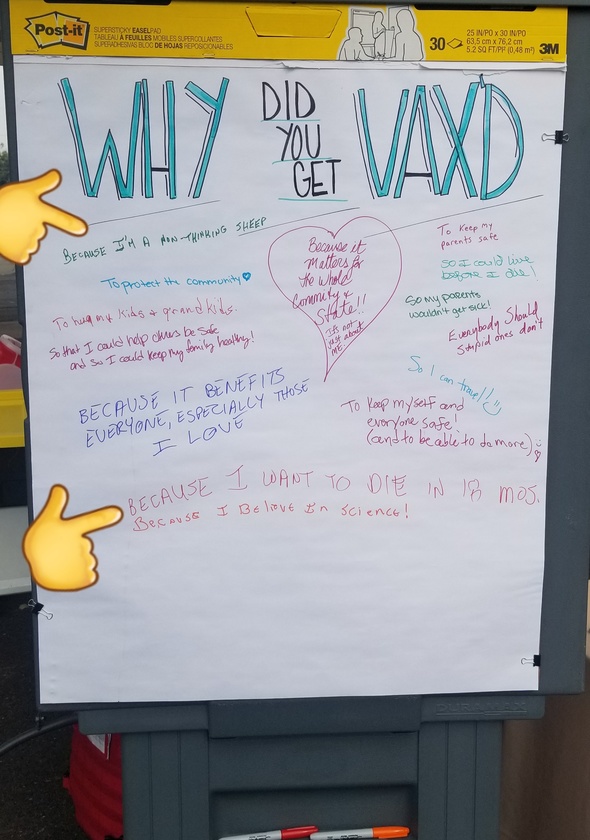 Post-it
SUPERSTICKY EASEL PAD
TABLEAU À FEUILLES MOBILES SUPERCOLLANTES
SUPERADHESIVAS BLOC DE HOJAS REPOSICIONABLES
30
25 IN/PO x 30 IN/PO
63,5 cm x 76,2 cm
5.2 SQ FT/PI² (0,48 m²)
3M
WHY DID YOU GET VAX'D
BECAUSE I'M A NON-THINKING SHEEP
To protect the community
To hug my kids & grand kids.
So that I could help others be safe
and so I could keep my family healthy!
BECAUSE IT BENEFITS
EVERYONE, ESPECIALLY THOSE
I LOVE
Because it
Matters for
the whole
Community &
State!!
It's not
just about
ME
To keep my
parents safe
SO I could live
before I die!
So my parents
wouldn't get sick!
Everybody Should
Stupid ones don't
So I can travel!!
To keep myself and
everyone safe!
(and to be able to do more)
BECAUSE I WANT TO DIE IN 18 MOS.
BECAUSE I BELIEVE IN SCIENCE!
DURAMAX